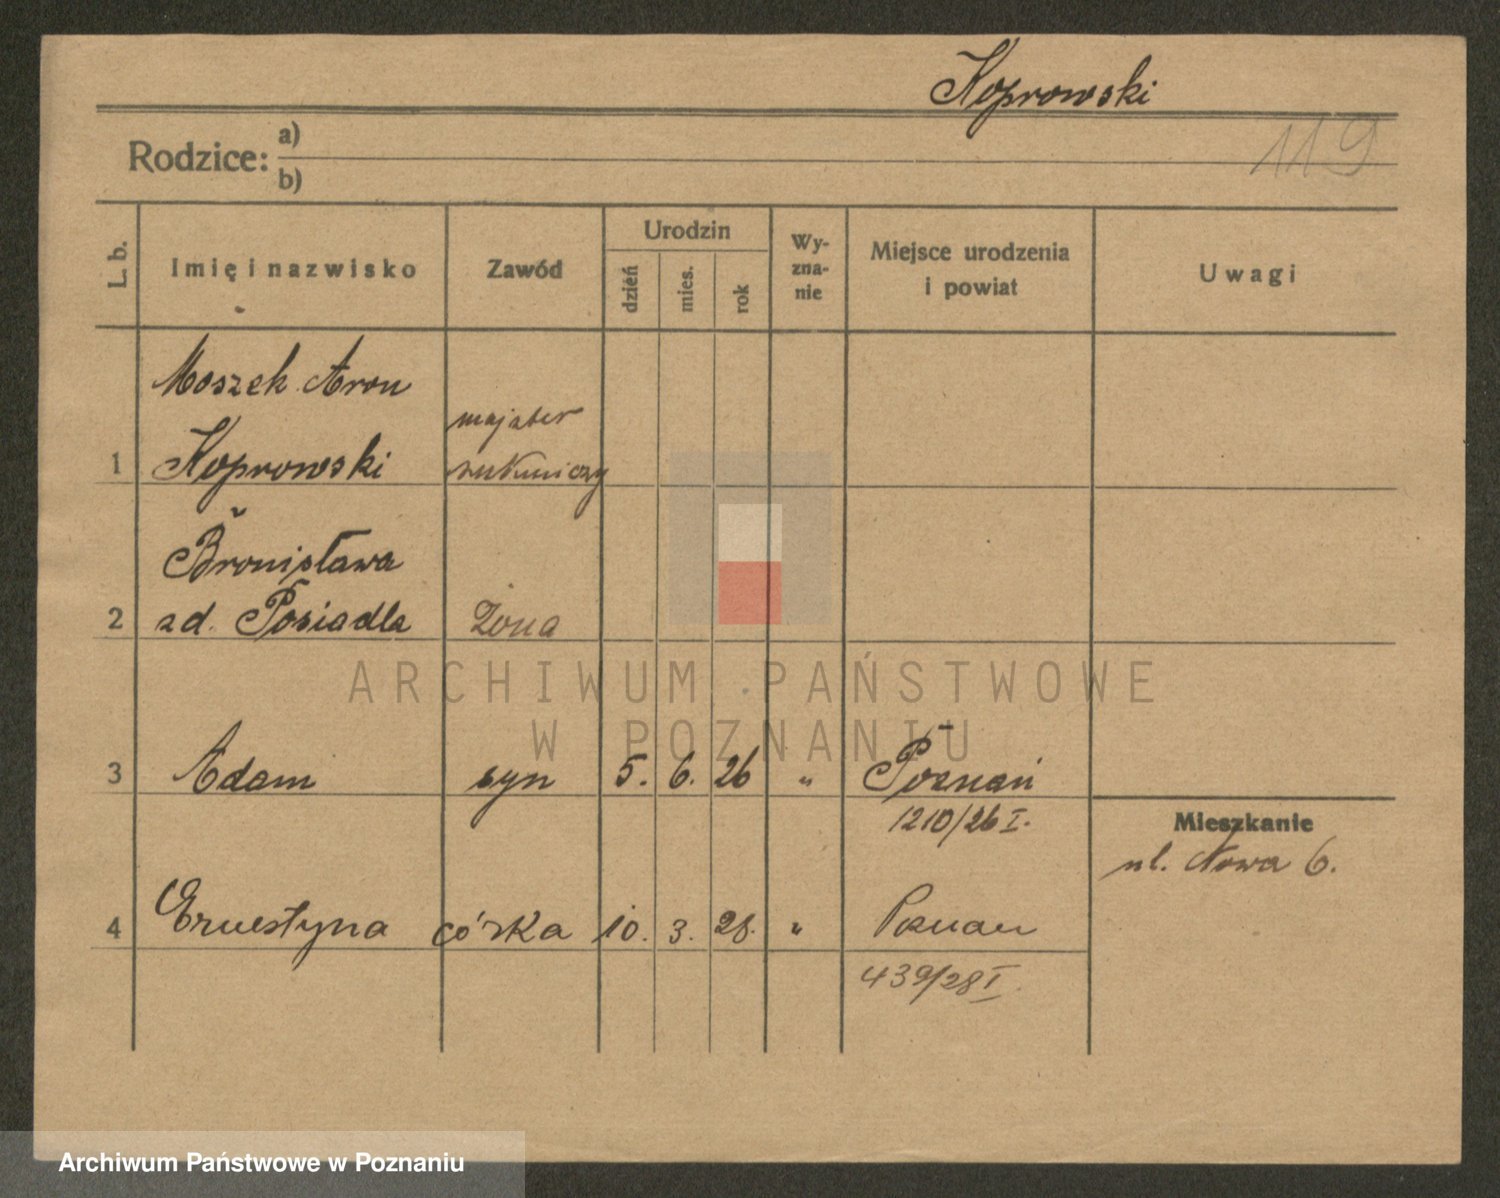 Koprowski
119
Rodzice: a)
b)
L. b.
Imię i nazwisko
Zawód
Urodzin
dzień
mies.
rok
Wy-
zna-
nie
Miejsce urodzenia
i powiat
Uwagi
Moszek Aron
1 Koprowski
majster
Bronisława
2 zd. Posiadla Żona
ARCHIWUM PAŃSTWOWE
W POZNANIU
3 Adam syn 5. 6. 26 " Poznań
1210/26 I.
Mieszkanie
ul. Nowa 6.
4 Ernestyna córka 10. 3. 28. " Poznań
439/28 I.
Archiwum Państwowe w Poznaniu